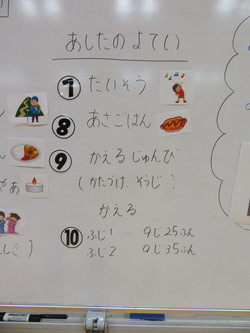 あしたのよてい
⑦ たいそう
⑧ あさごはん
⑨ かえるじゅんび
(かたづけ、そうじ)
かえる
⑩ ふじ1 … 9じ25ふん
ふじ2 … 9じ35ふん